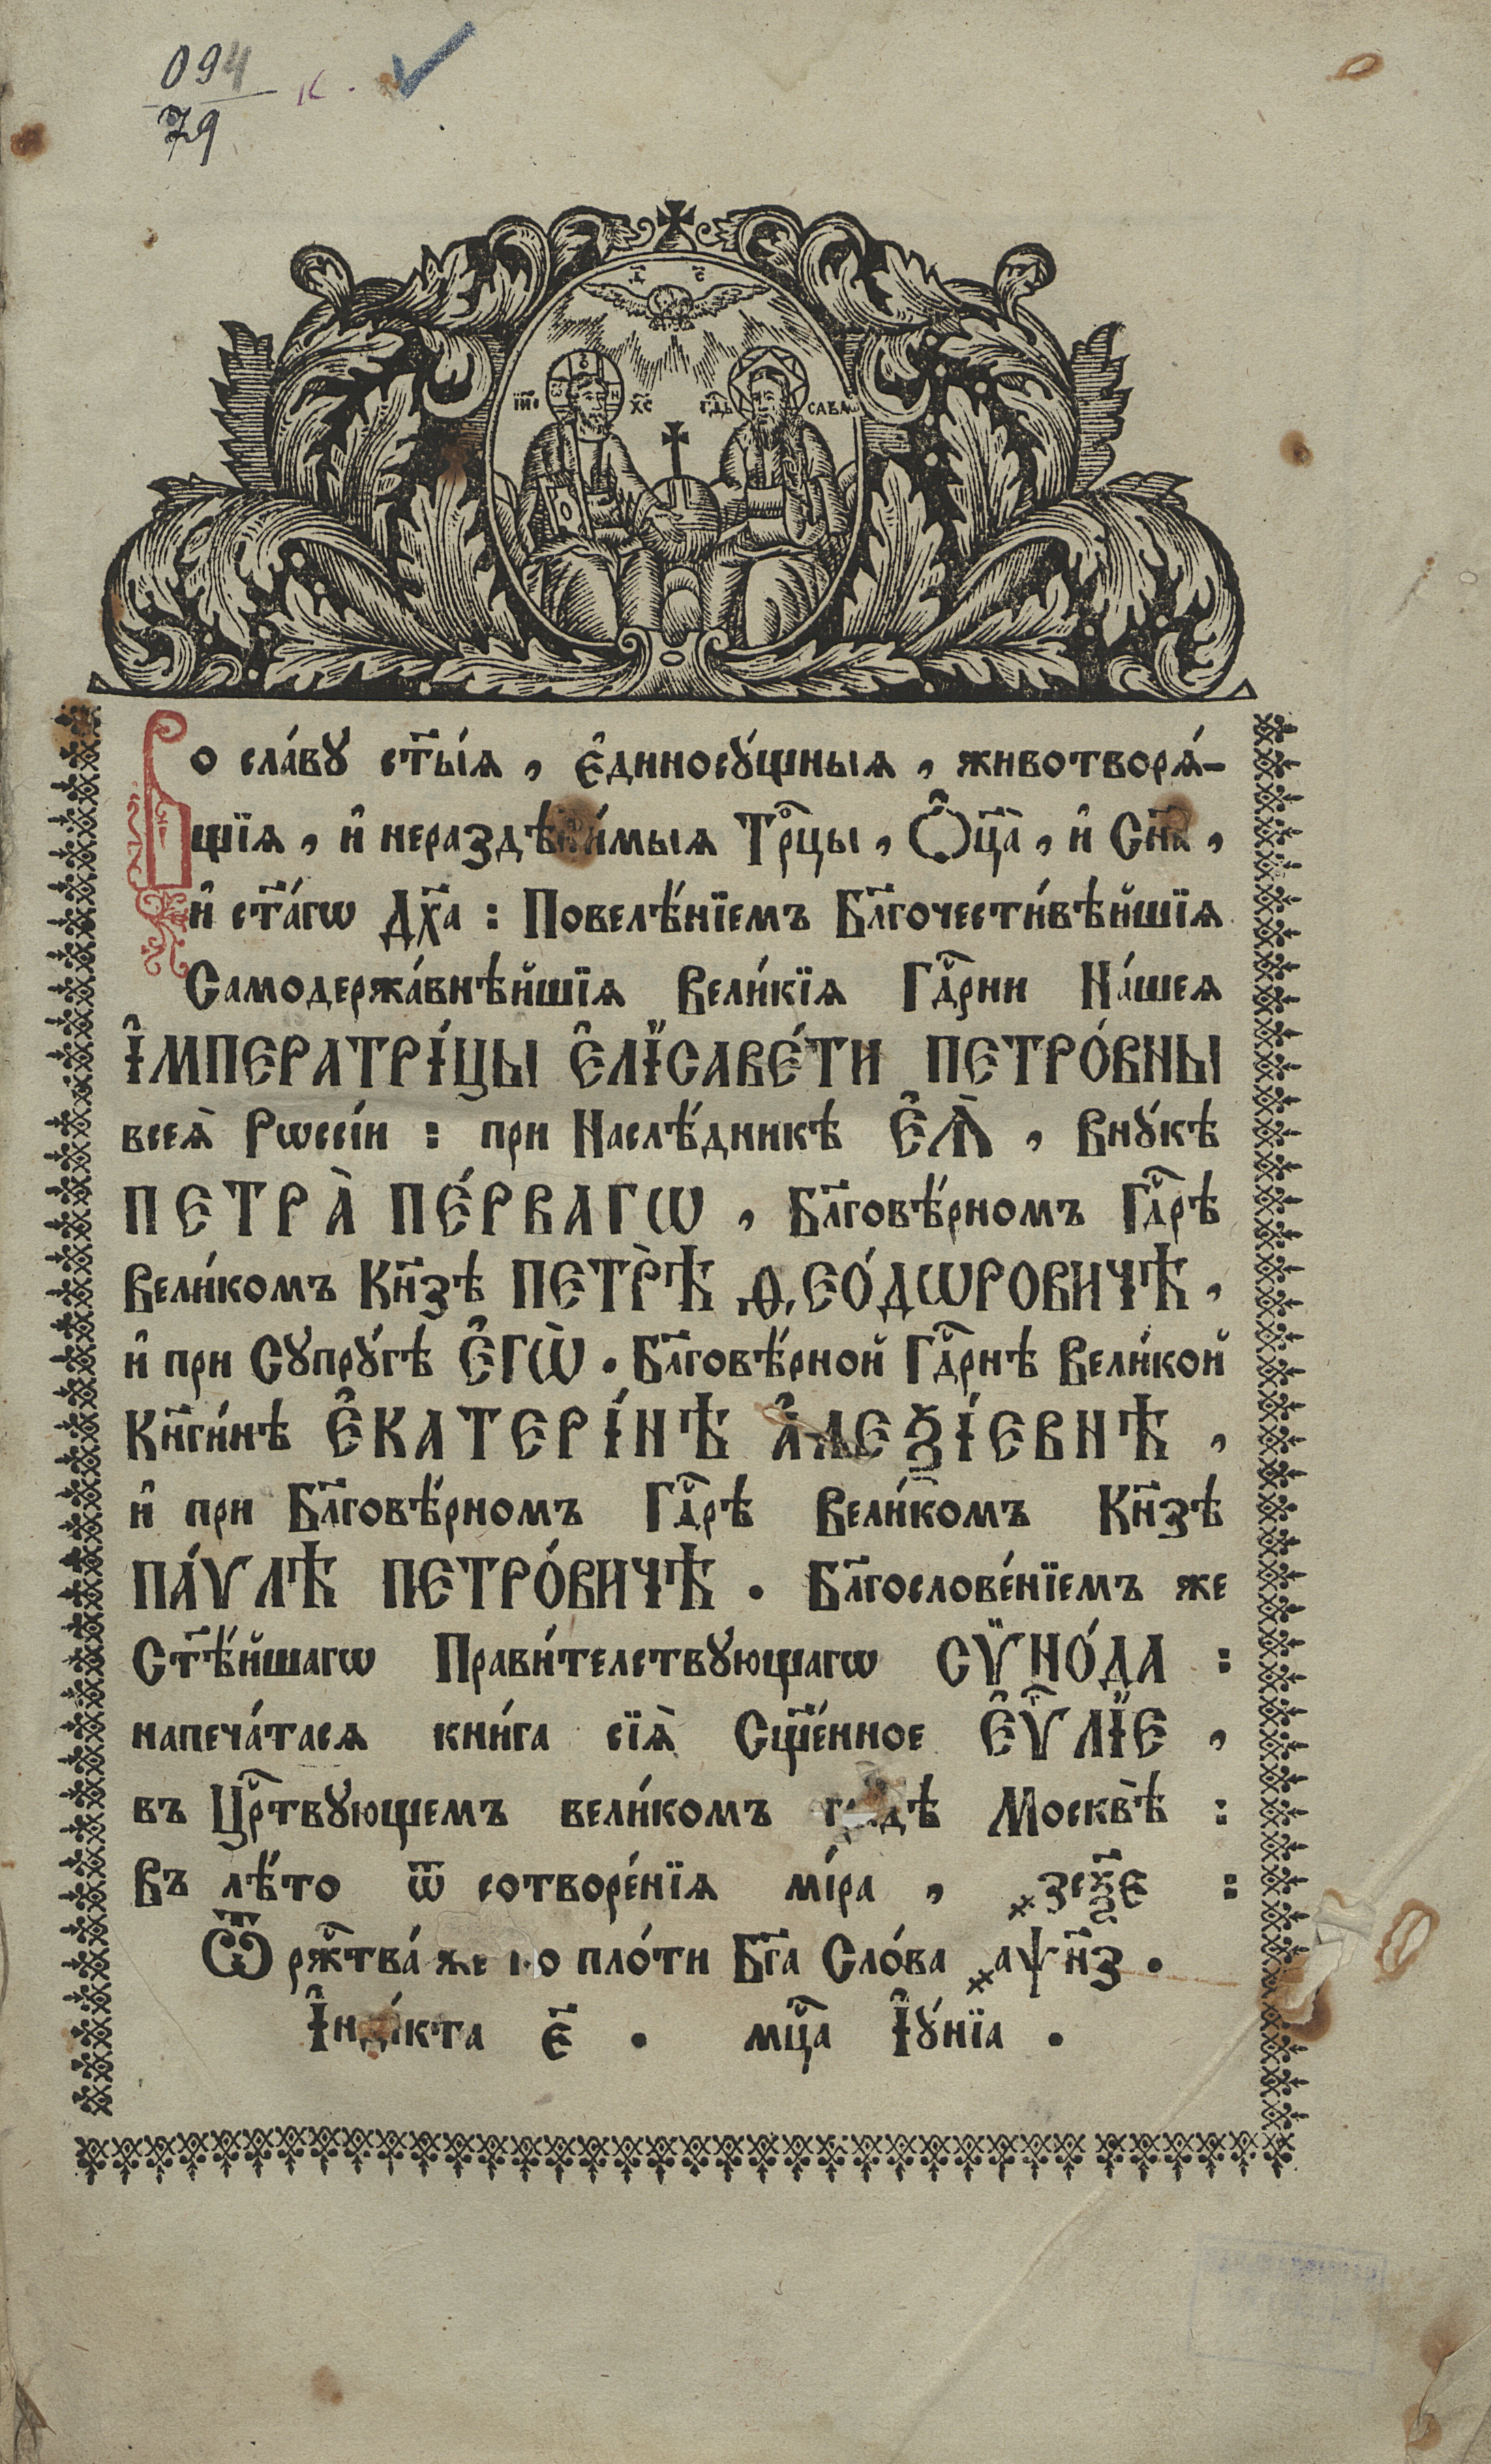 094
79
к.
Д҃ С҃
І҆И҃С Х҃С Гд҃ь САВАѠ
Во сла́вꙋ ст҃ы́ѧ, є҆диносꙋ́щныѧ, животворѧ́-
щїѧ, и҆ нераздѣли́мыѧ Трⷪ҇цы, Ѻ҆ц҃а̀, и҆ Сн҃а,
и҆ ст҃а́гѡ Дх҃а: Повелѣ́нїемъ Бл҃гочести́вѣйшїѧ
Самодержа́внѣйшїѧ Вели́кїѧ Гдⷭ҇рни На́шеѧ
І҆МПЕРАТРІ́ЦЫ Є҆ЛЇСАВЕ́ТИ ПЕТРО́ВНЫ
всеѧ̀ Рѡссі́и: при Наслѣ́дникѣ Є҆Ѧ̀, Внꙋ́кѣ
ПЕТРА̀ ПЕ́РВАГѠ, Бл҃говѣ́рномъ Гдⷭ҇рѣ
Вели́комъ Кн҃зѣ ПЕТРѢ̀ Ѳ҆ЕО́ДѠРОВИЧѢ,
и҆ при Сꙋпрꙋ́гѣ Є҆ГѠ̀. Бл҃говѣ́рной Гдⷭ҇рнѣ Вели́кой
Кн҃ги́нѣ Є҆КАТЕРІ́НѢ А҆ЛЕѮІ́ЕВНѢ,
и҆ при Бл҃говѣ́рномъ Гдⷭ҇рѣ Вели́комъ Кн҃зѣ
ПА́ѴЛѢ ПЕТРО́ВИЧѢ. Бл҃гослове́нїемъ же
Ст҃ѣ́йшагѡ Прави́телствꙋющагѡ СѶНО́ДА:
напеча́тасѧ кни́га сїѧ̀ Сщ҃е́нное Є҆Ѵⷢ҇ЛЇЕ,
въ Црⷭ҇твꙋющемъ вели́комъ гра́дѣ Москвѣ̀:
Въ лѣ́то ѿ сотворе́нїѧ мі́ра, ҂зсѯ҃є:
Ѿ ржⷭ҇тва́ же по пло́ти Бг҃а Сло́ва ҂аѱн҃з.
І҆нді́кта є҃. мцⷭ҇а І҆ꙋ́нїа.